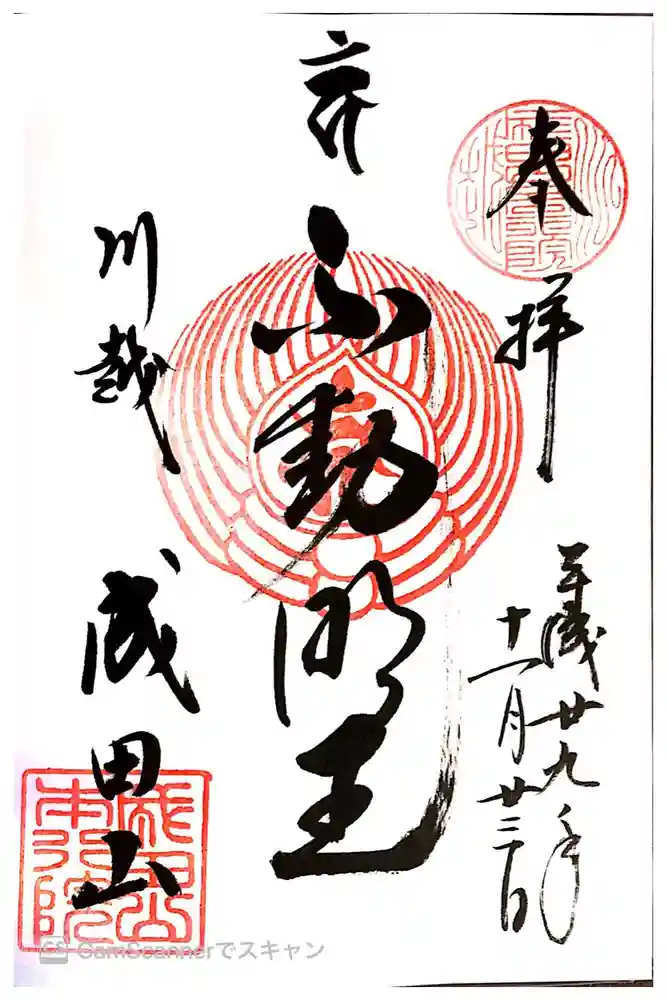 奉拝
平成廿九年
十一月廿三日
不動明王
川越 成田山
成田山本行院
CS CamScannerでスキャン